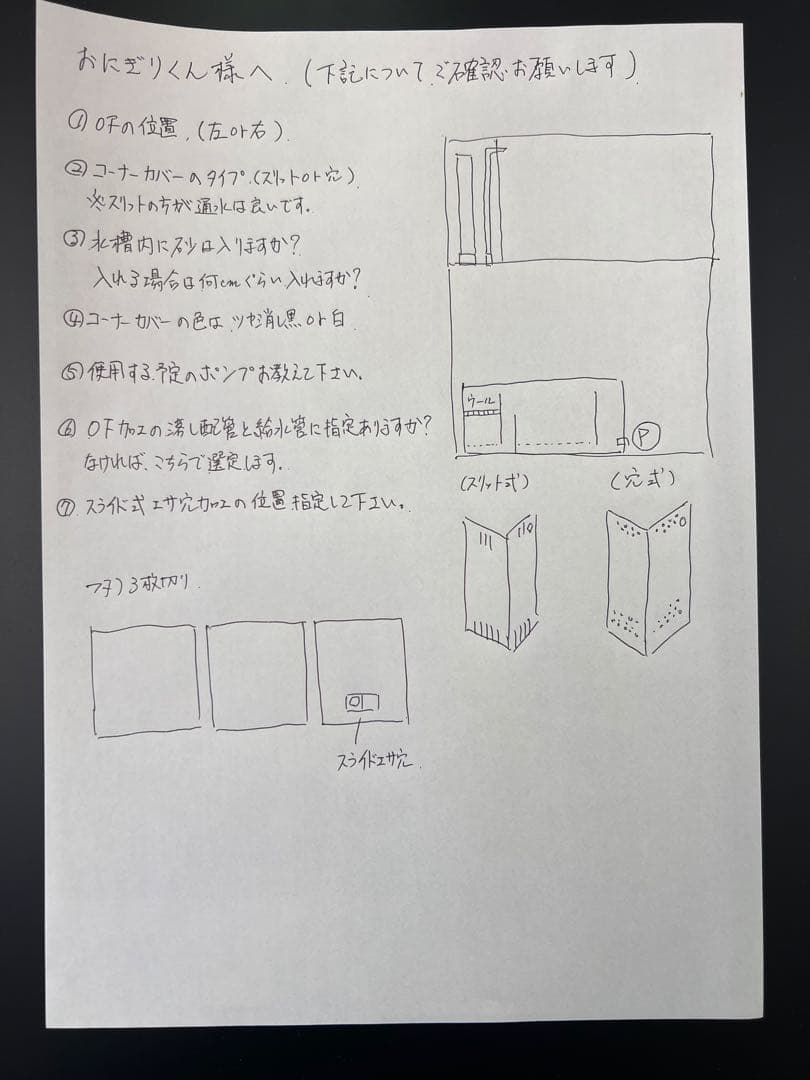 おにぎりくん様へ.(下記について、ご確認お願いします)
① OFの位置.(左or右).
② コーナーカバーのタイプ.(スリットor穴)
※スリットの方が通水は良いです。
③ 水槽内に砂は入りますか?
入れる場合は何cmぐらい入れますか?
④ コーナーカバーの色はツヤ消し黒or白
⑤ 使用する予定のポンプお教えて下さい。
⑥ OF加工の落し配管と給水管に指定ありますか?
なければ、こちらで選定します。
⑦ スライド式エサ穴加工の位置指定して下さい。
ウール
P
(スリット式)
(穴式)
フタ)3枚切り
スライドエサ穴